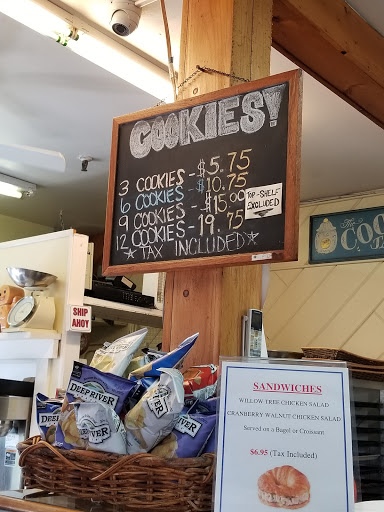 COOKIES!
3 COOKIES - $5.75
6 COOKIES - $10.75
9 COOKIES - $15.00
12 COOKIES - 19.75
TOP-SHELF
EXCLUDED
★ TAX INCLUDED ★
The
COO
SHIP
AHOY
DEEP RIVER
DEEP RIVER
RIVER
SANDWICHES
WILLOW TREE CHICKEN SALAD
CRANBERRY WALNUT CHICKEN SALAD
Served on a Bagel or Croissant
$6.95 (Tax Included)